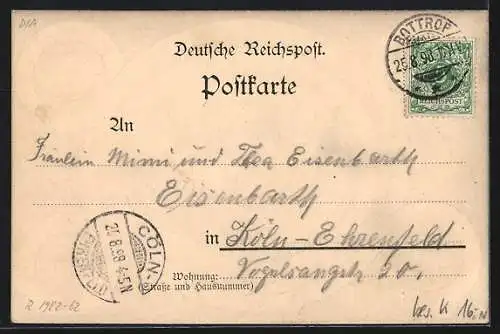 DNA
BOTTROP
26.8.98
REICHSPOST
Deutsche Reichspost.
Postkarte
An
Fräulein Mimi und Thea Eisenbarth
Eisenbarth
in Köln-Ehrenfeld
Wohnung: Vogelsangstr 20,
(Straße und Hausnummer)
CÖLN
27.8.98 4-5N
R 1982-62
bes. K 16.-